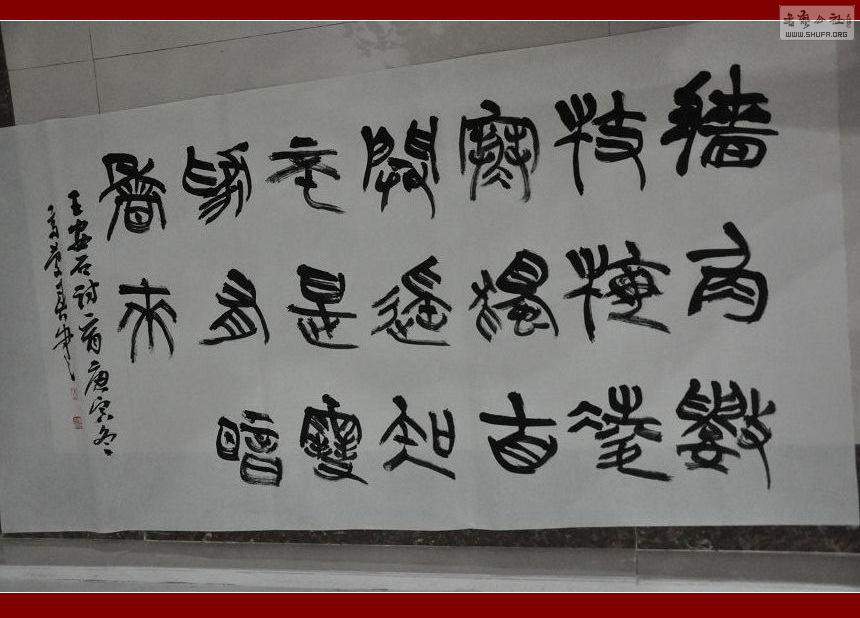 牆角數
枝梅凌
寒獨自
開遙知
不是雪
為有暗
香來
王安石詩一首庚寅冬
高慶春
書藝公社
WWW.SHUFA.ORG